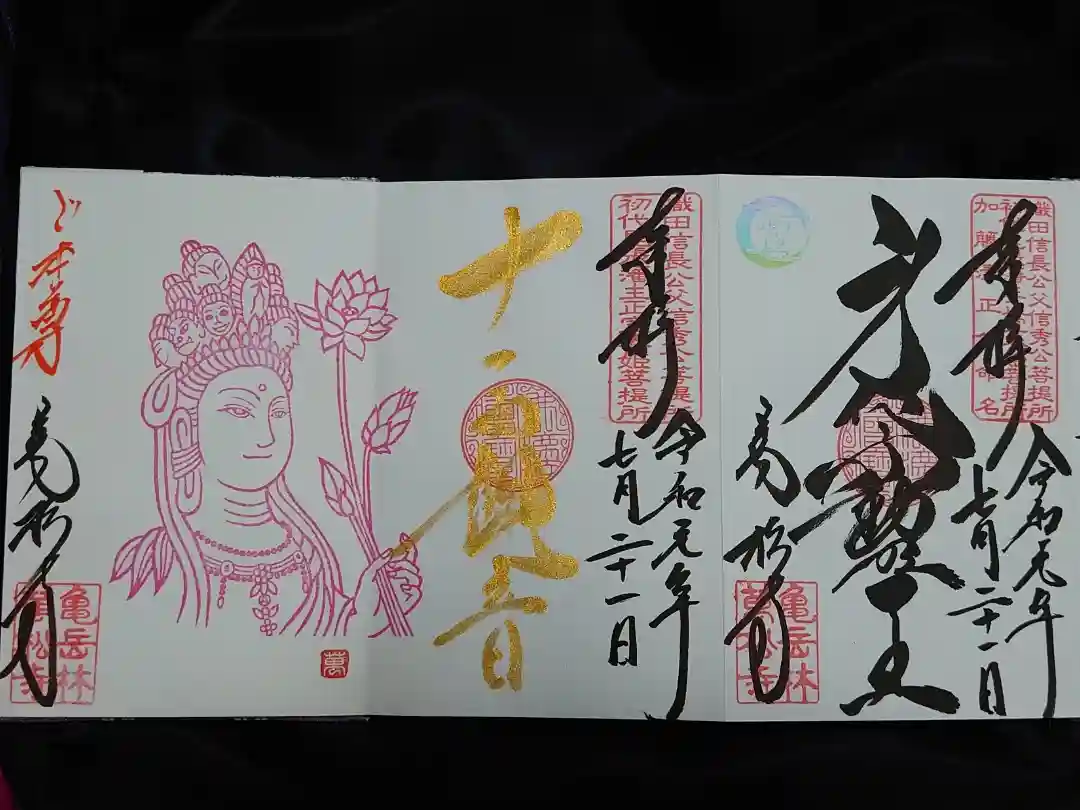 奉拝
令和元年
七月二十一日
織田信長公父信秀公菩提所
身代不動明王
萬松寺
亀岳林
萬松寺
奉拝
令和元年
七月二十一日
織田信長公父信秀公菩提所
初代尾張藩主正室春姫菩提所
十一面観音
萬
ご本尊
萬松寺
亀岳林
萬松寺